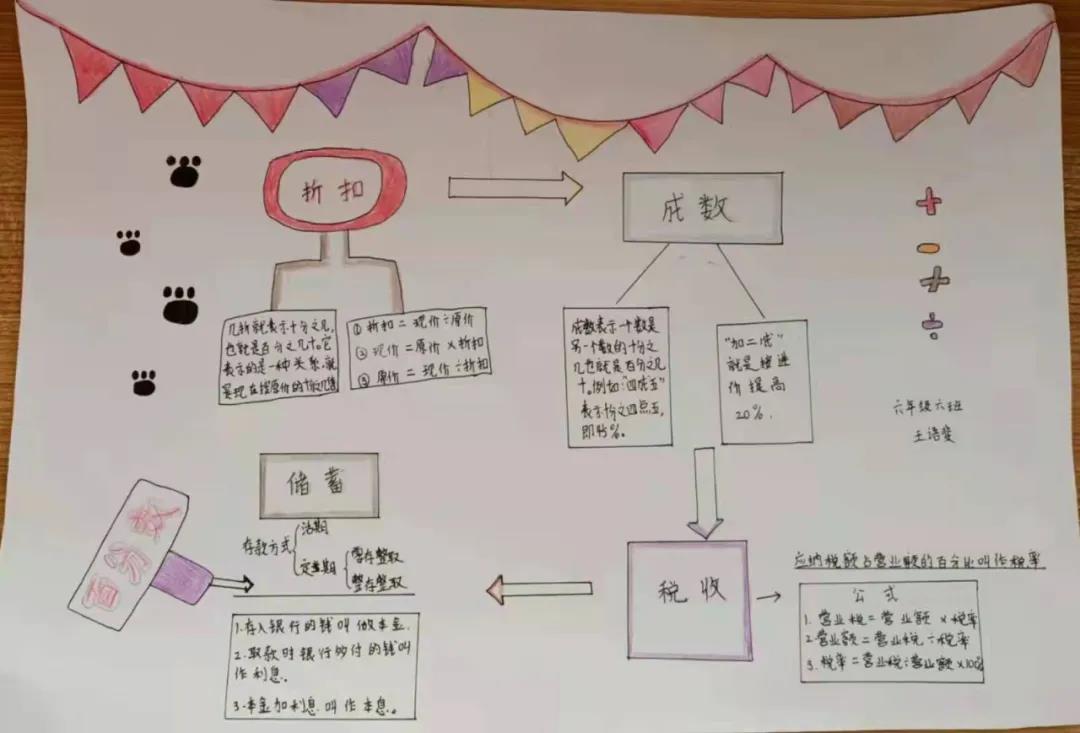 折扣
几折就表示十分之几,
也就是百分之几十。它
表示的是一种关系,就
是现在按原价的十分之几售
① 折扣=现价÷原价
② 现价=原价×折扣
③ 原价=现价÷折扣
成数
成数表示一个数是
另一个数的十分之
几也就是百分之几
十。例如:"四成五"
表示十分之四点五,
即45%。
"加二成"
就是按进
价提高
20%.
六年级六班
储蓄
存款方式
活期
定期
零存整取
整存整取
1.存入银行的钱叫做本金.
2.取款时银行多付的钱叫
作利息。
3.本金加利息.叫作本息。
百分数
税收
应纳税额占营业额的百分比叫作税率
公式
1.营业税=营业额×税率
2.营业额=营业税÷税率
3.税率=营业税÷营业额×100%